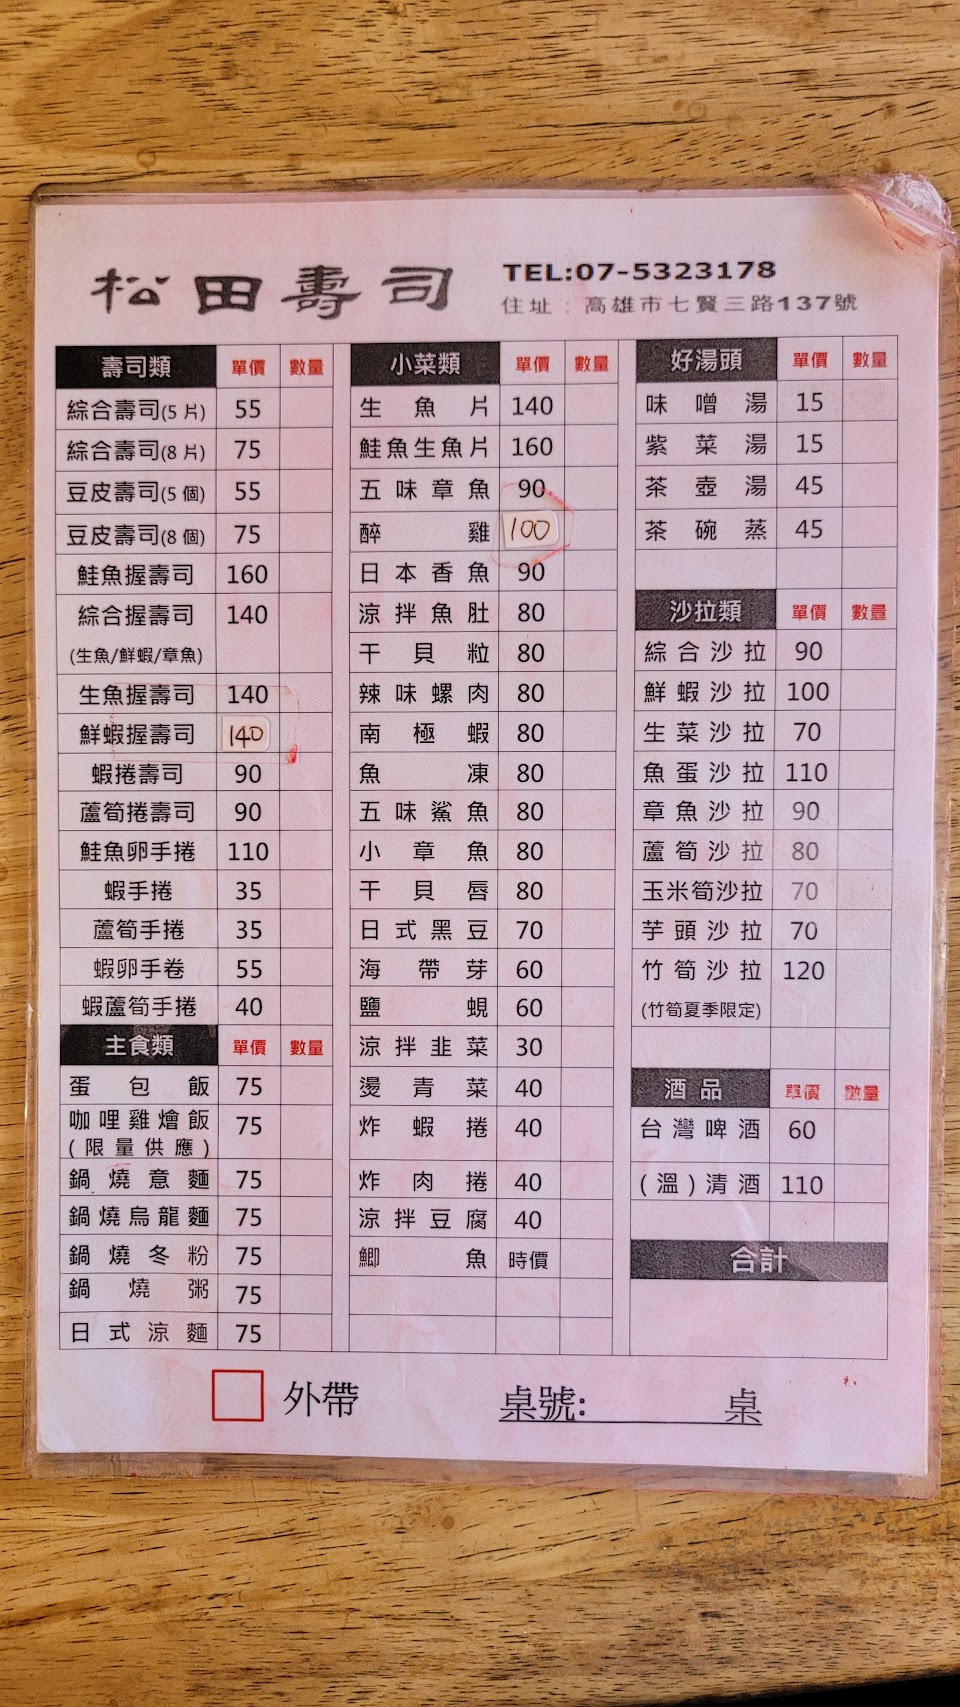 松田壽司
TEL:07-5323178
住址：高雄市七賢三路137號
壽司類 單價 數量
綜合壽司(5 片) 55
綜合壽司(8 片) 75
豆皮壽司(5 個) 55
豆皮壽司(8 個) 75
鮭魚握壽司 160
綜合握壽司 140
(生魚/鮮蝦/章魚)
生魚握壽司 140
鮮蝦握壽司 140
蝦捲壽司 90
蘆筍捲壽司 90
鮭魚卵手捲 110
蝦手捲 35
蘆筍手捲 35
蝦卵手卷 55
蝦蘆筍手捲 40
主食類 單價 數量
蛋包飯 75
咖哩雞燴飯 75
(限量供應)
鍋燒意麵 75
鍋燒烏龍麵 75
鍋燒冬粉 75
鍋燒粥 75
日式涼麵 75
小菜類 單價 數量
生魚片 140
鮭魚生魚片 160
五味章魚 90
醉雞 100
日本香魚 90
涼拌魚肚 80
干貝粒 80
辣味螺肉 80
南極蝦 80
魚凍 80
五味鯊魚 80
小章魚 80
干貝唇 80
日式黑豆 70
海帶芽 60
鹽蜆 60
涼拌韭菜 30
燙青菜 40
炸蝦捲 40
炸肉捲 40
涼拌豆腐 40
鯽魚 時價
好湯頭 單價 數量
味噌湯 15
紫菜湯 15
茶壺湯 45
茶碗蒸 45
沙拉類 單價 數量
綜合沙拉 90
鮮蝦沙拉 100
生菜沙拉 70
魚蛋沙拉 110
章魚沙拉 90
蘆筍沙拉 80
玉米筍沙拉 70
芋頭沙拉 70
竹筍沙拉 120
(竹筍夏季限定)
酒品 單價 數量
台灣啤酒 60
(溫)清酒 110
合計
外帶
桌號: 桌